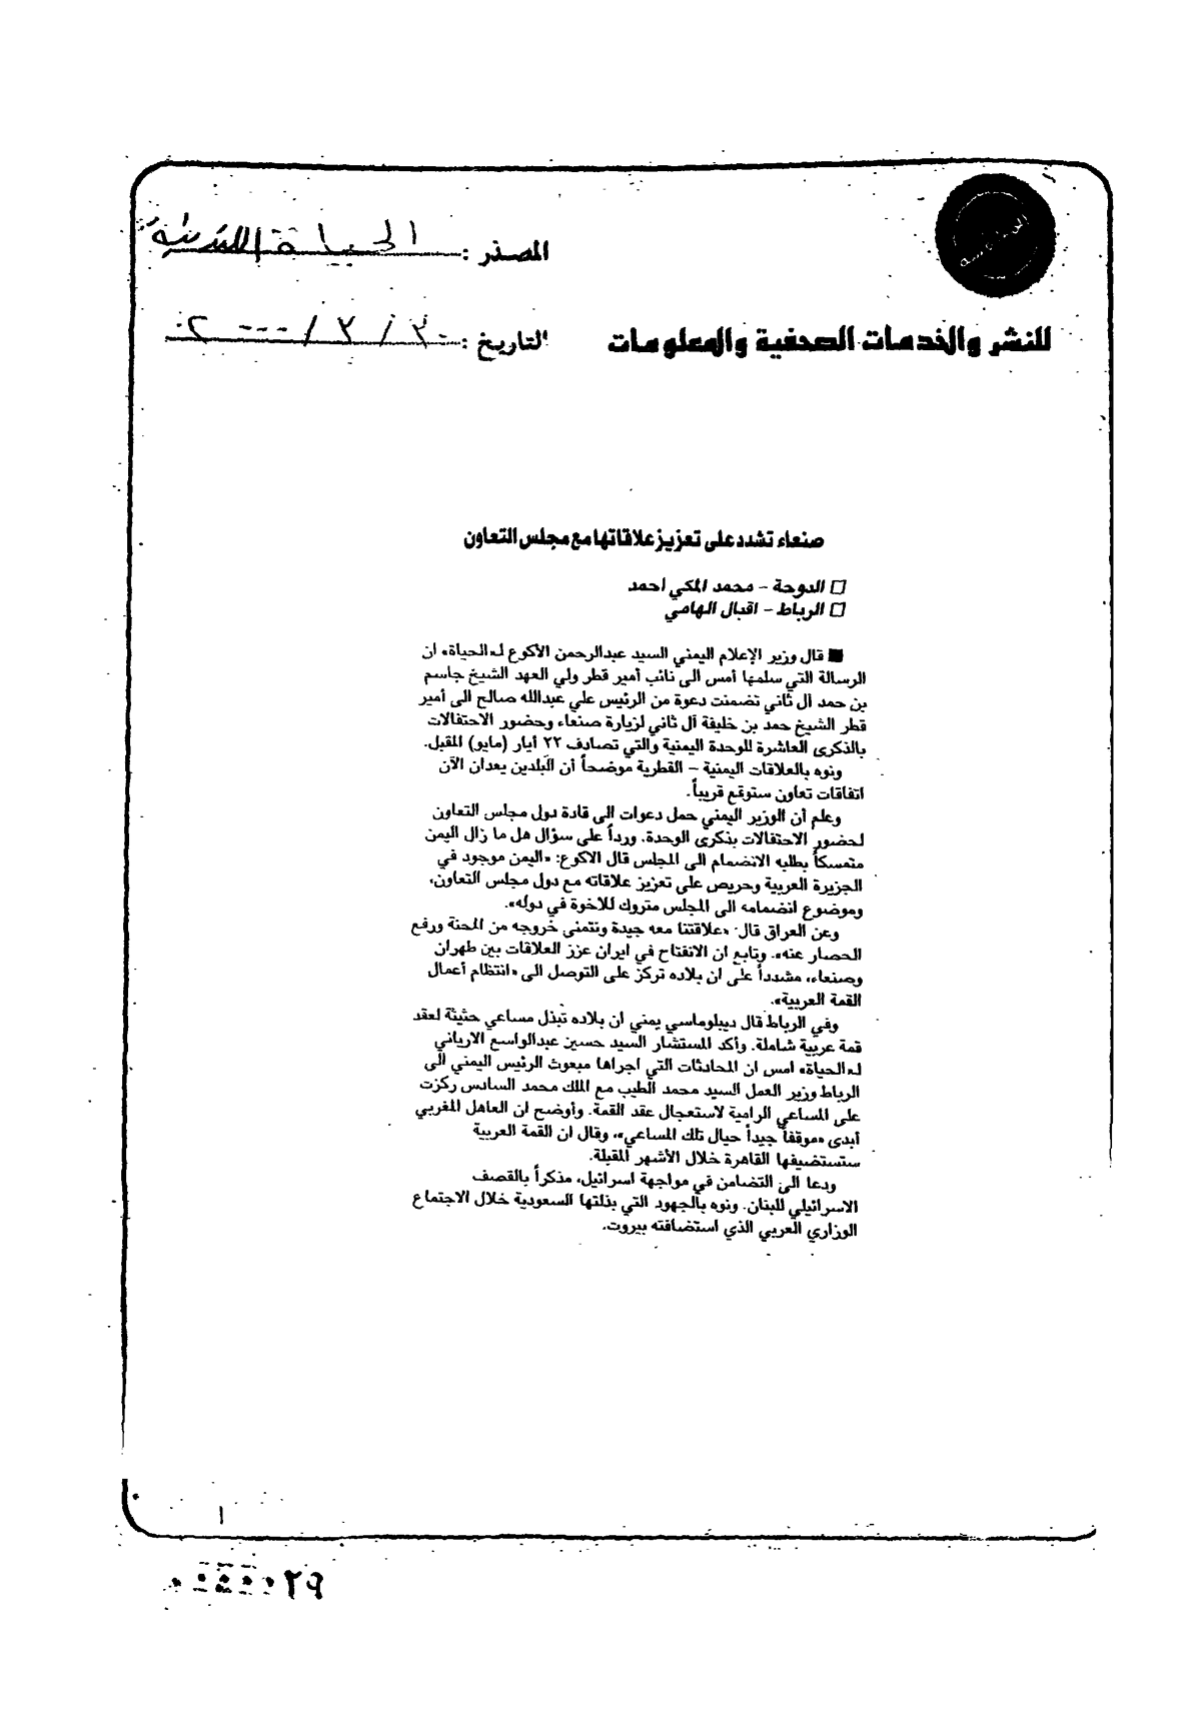 المصدر : الحياة اللندنية
للنشر والخدمات الصحفية والمعلومات
التاريخ : ٢٠ / ٣ / ٢٠٠٠
صنعاء تشدد على تعزيز علاقاتها مع مجلس التعاون
□ الدوحة - محمد المكي احمد
□ الرباط - اقبال الهامي
■ قال وزير الإعلام اليمني السيد عبدالرحمن الأكوع لـ«الحياة» ان
الرسالة التي سلمها أمس الى نائب أمير قطر ولي العهد الشيخ جاسم
بن حمد آل ثاني تضمنت دعوة من الرئيس علي عبدالله صالح الى أمير
قطر الشيخ حمد بن خليفة آل ثاني لزيارة صنعاء وحضور الاحتفالات
بالذكرى العاشرة للوحدة اليمنية والتي تصادف ٢٢ أيار (مايو) المقبل.
ونوه بالعلاقات اليمنية - القطرية موضحاً أن البلدين يعدان الآن
اتفاقات تعاون ستوقع قريباً.
وعلم أن الوزير اليمني حمل دعوات الى قادة دول مجلس التعاون
لحضور الاحتفالات بذكرى الوحدة. ورداً على سؤال هل ما زال اليمن
متمسكاً بطلبه الانضمام الى المجلس قال الاكوع: «اليمن موجود في
الجزيرة العربية وحريص على تعزيز علاقاته مع دول مجلس التعاون،
وموضوع انضمامه الى المجلس متروك للاخوة في دوله».
وعن العراق قال: «علاقتنا معه جيدة ونتمنى خروجه من المحنة ورفع
الحصار عنه». وتابع ان الانفتاح في ايران عزز العلاقات بين طهران
وصنعاء، مشدداً على ان بلاده تركز على التوصل الى «انتظام أعمال
القمة العربية».
وفي الرباط قال ديبلوماسي يمني ان بلاده تبذل مساعي حثيثة لعقد
قمة عربية شاملة. وأكد المستشار السيد حسين عبدالواسع الارياني
لـ«الحياة» امس ان المحادثات التي اجراها مبعوث الرئيس اليمني الى
الرباط وزير العمل السيد محمد الطيب مع الملك محمد السادس ركزت
على المساعي الرامية لاستعجال عقد القمة. وأوضح ان العاهل المغربي
أبدى «موقفاً جيداً حيال تلك المساعي»، وقال ان القمة العربية
ستستضيفها القاهرة خلال الأشهر المقبلة.
ودعا الى التضامن في مواجهة اسرائيل، مذكراً بالقصف
الاسرائيلي للبنان. ونوه بالجهود التي بذلتها السعودية خلال الاجتماع
الوزاري العربي الذي استضافته بيروت.
١